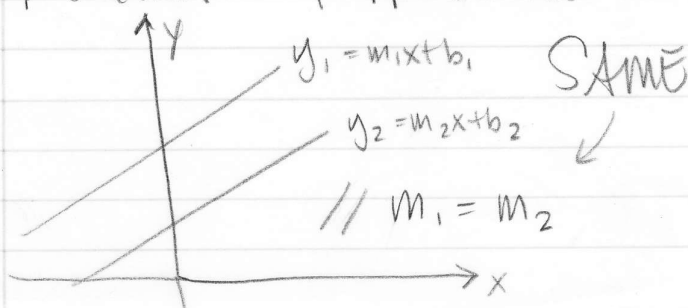 y
y₁ = m₁x+b₁
SAME
y₂ = m₂x+b₂
// m₁ = m₂
x